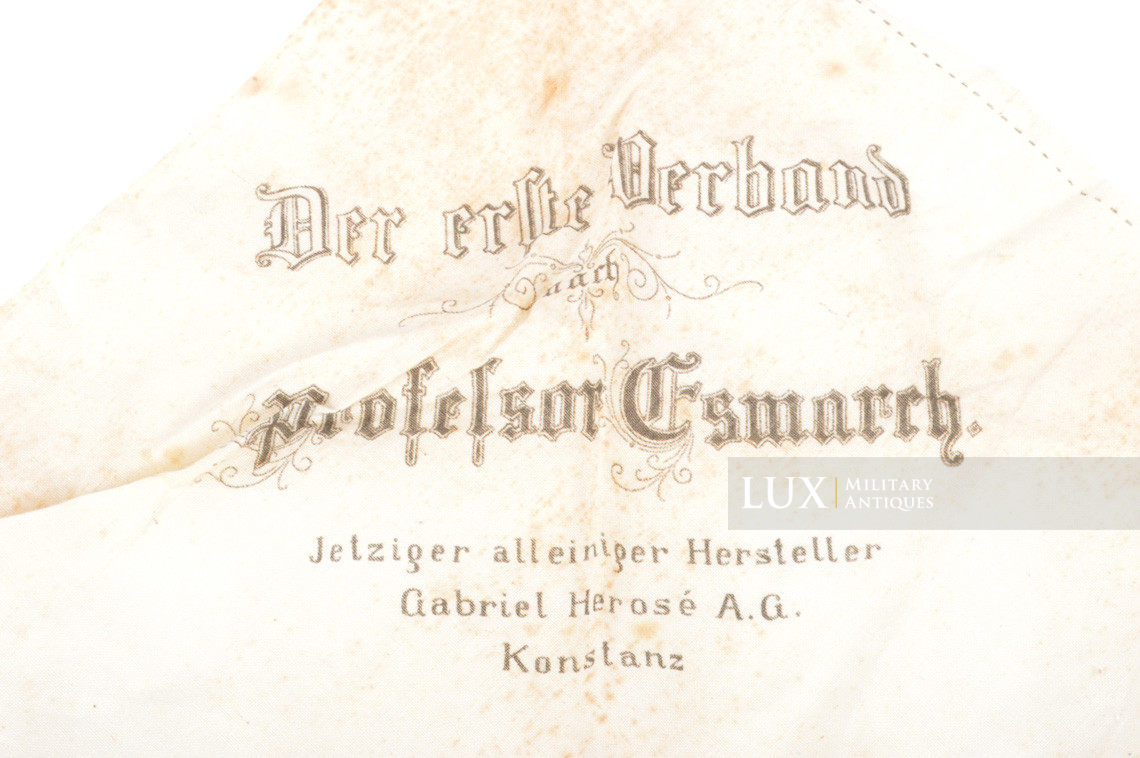 Der erste Verband
nach
Professor Esmarch.
Jetziger alleiniger Hersteller
Gabriel Herosé A.G.
Konstanz
LUX MILITARY
ANTIQUES